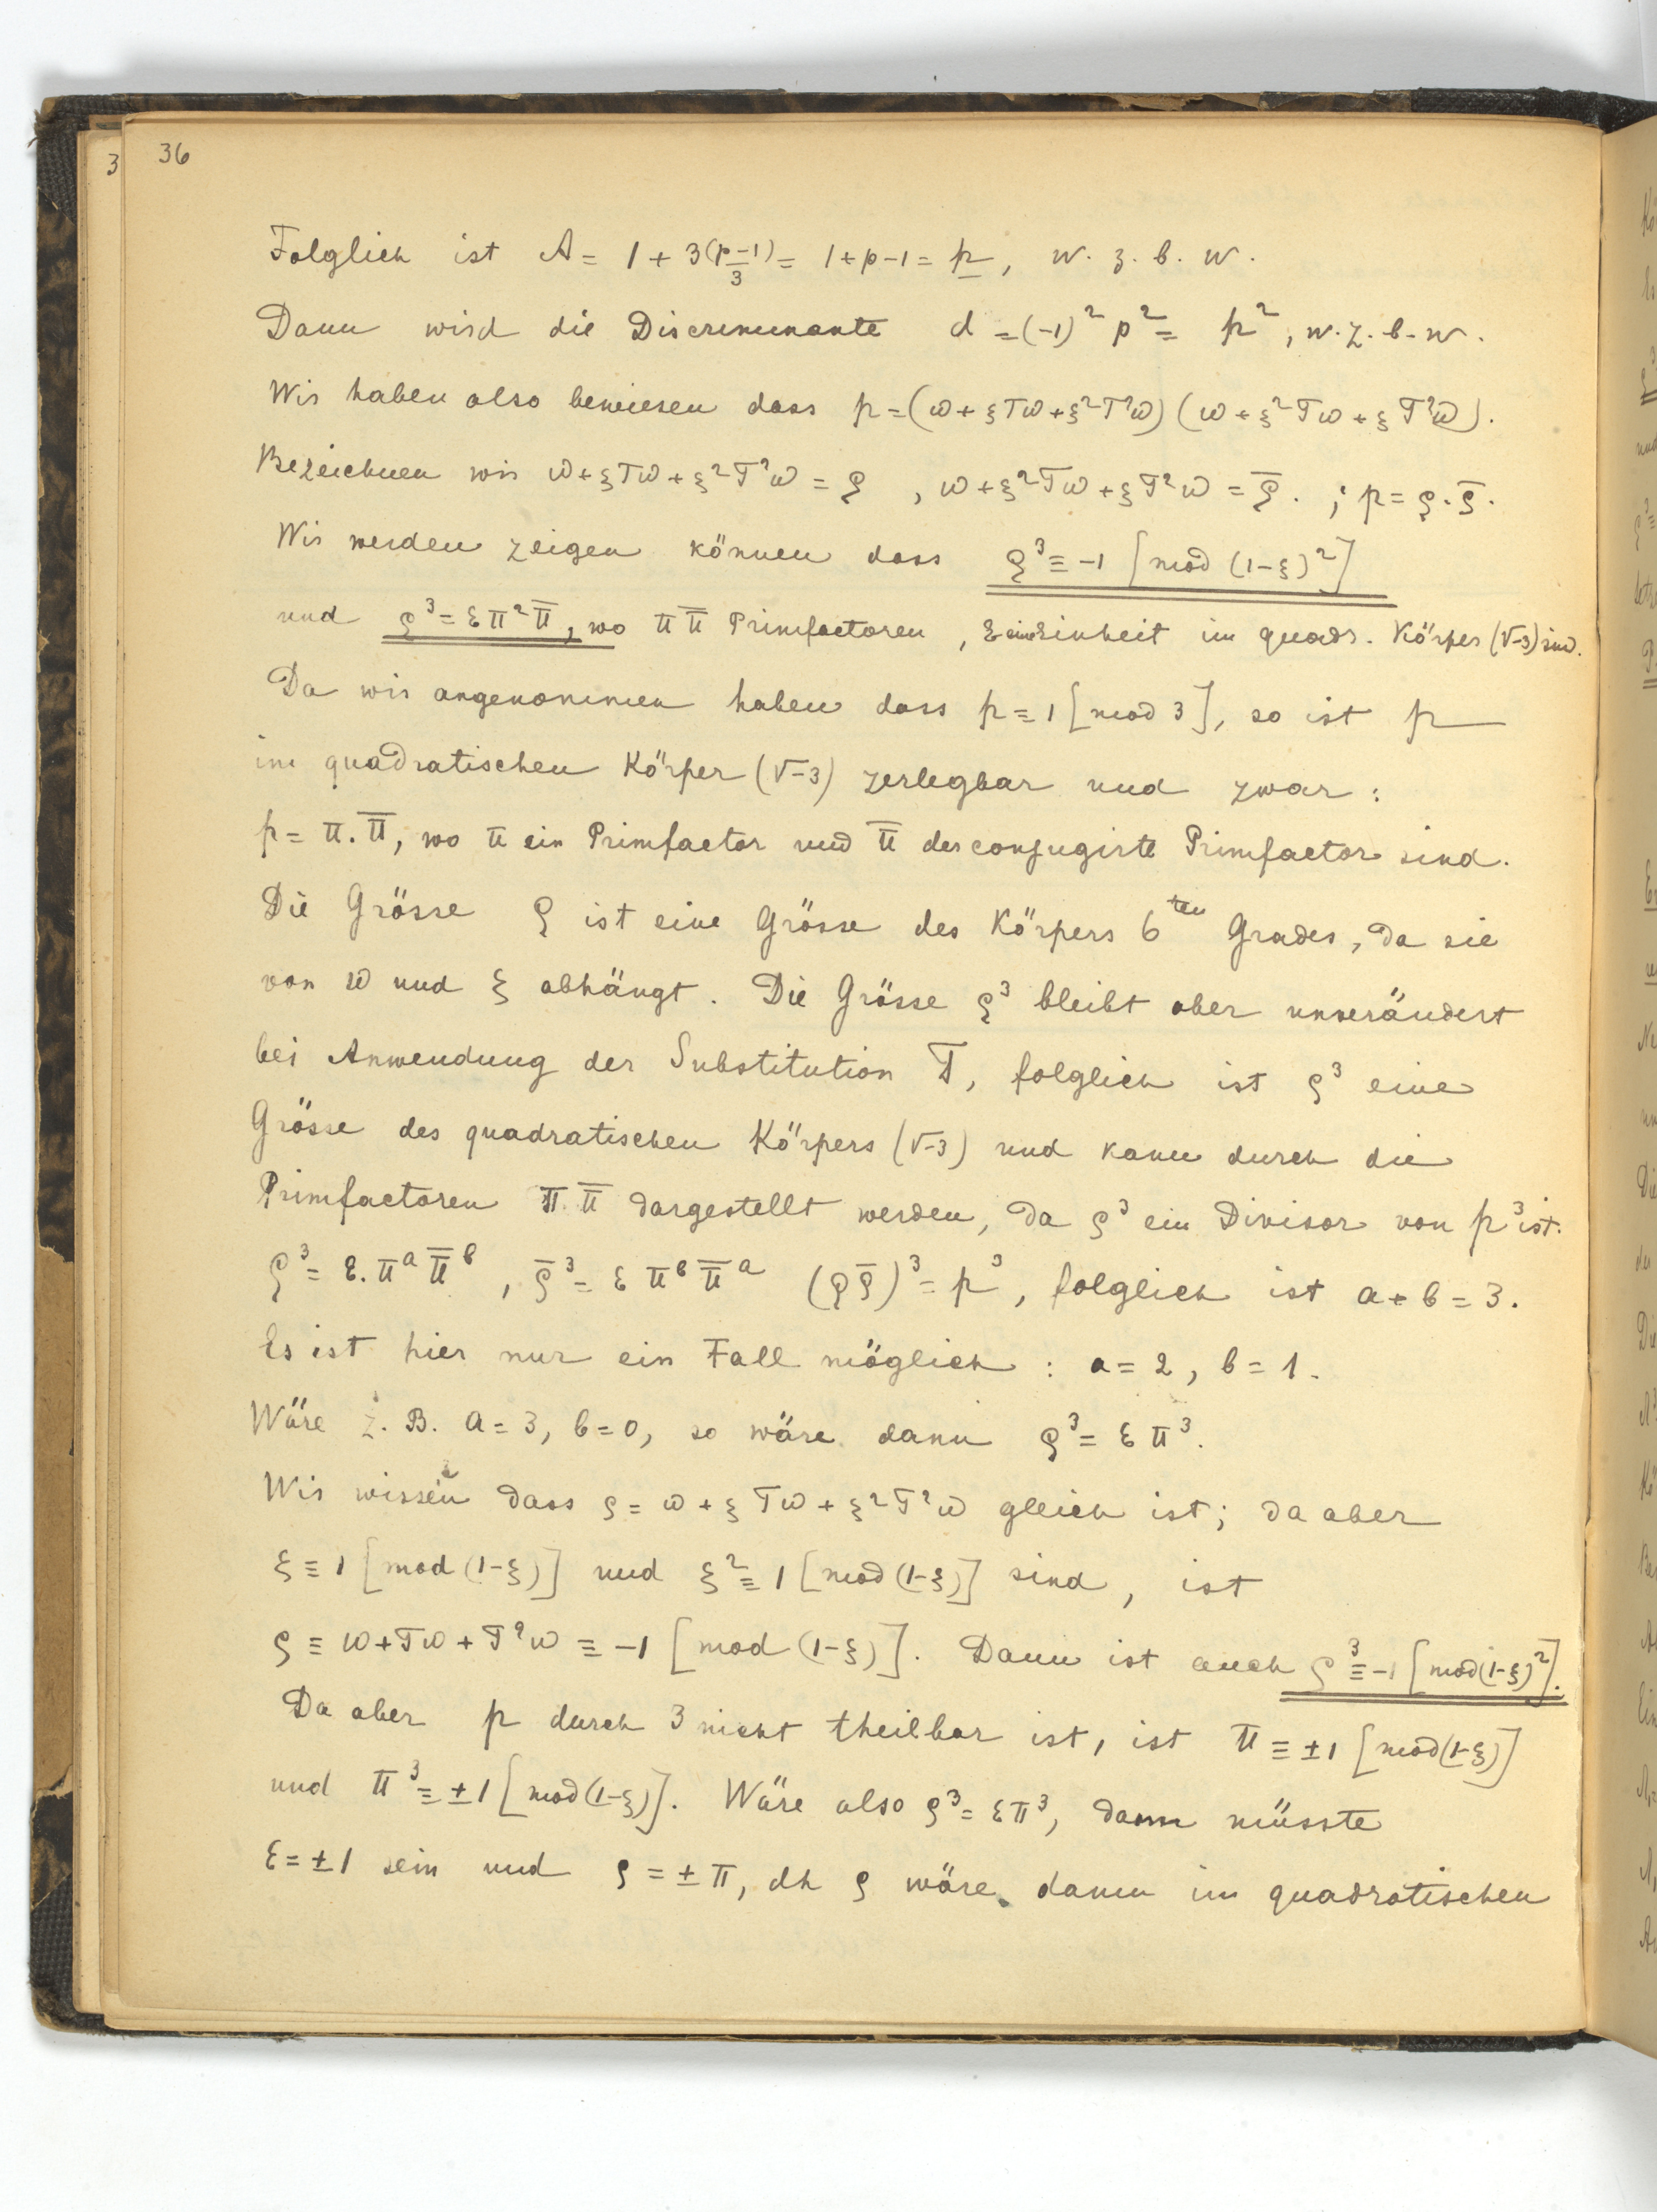 3 36
Folglich ist A = 1 + 3(p-1)/3 = 1+p-1 = p, w. z. b. w.
Dann wird die Discriminante d = (-1)² p² = p², w. z. b. w.
Wir haben also bewiesen dass p = (ω + ξTω + ξ²T²ω) (ω + ξ²Tω + ξT²ω).
Bezeichnen wir ω + ξTω + ξ²T²ω = ρ, ω + ξ²Tω + ξT²ω = ρ̅. ; p = ρ.ρ̅.
Wir werden zeigen können dass ρ³ ≡ -1 [mod (1-ξ)²]
und ρ³ = επ²π̅, wo π π̅ Primfactoren, ε eine Einheit im quadr. Körper (√-3) sind.
Da wir angenommen haben dass p ≡ 1 [mod 3], so ist p
im quadratischen Körper (√-3) zerlegbar und zwar:
p = π.π̅, wo π ein Primfactor und π̅ der conjugirte Primfactor sind.
Die Grösse ρ ist eine Grösse des Körpers 6ten Grades, da sie
von ω und ξ abhängt. Die Grösse ρ³ bleibt aber unverändert
bei Anwendung der Substitution T, folglich ist ρ³ eine
Grösse des quadratischen Körpers (√-3) und kann durch die
Primfactoren π.π̅ dargestellt werden, da ρ³ ein Divisor von p³ ist.
ρ³ = ε.πᵃπ̅ᵇ, ρ̅³ = επᵇπ̅ᵃ (ρρ̅)³ = p³, folglich ist a + b = 3.
Es ist hier nur ein Fall möglich : a = 2, b = 1.
Wäre z. B. a = 3, b = 0, so wäre dann ρ³ = επ³.
Wir wissen dass ρ = ω + ξTω + ξ²T²ω gleich ist; da aber
ξ ≡ 1 [mod (1-ξ)] und ξ² ≡ 1 [mod (1-ξ)] sind, ist
ρ ≡ ω + Tω + T²ω ≡ -1 [mod (1-ξ)]. Dann ist auch ρ³ ≡ -1 [mod (1-ξ)²].
Da aber p durch 3 nicht theilbar ist, ist π ≡ ±1 [mod (1-ξ)]
und π³ ≡ ±1 [mod (1-ξ)]. Wäre also ρ³ = επ³, dann müsste
ε = ±1 sein und ρ = ±π, dh ρ wäre dann im quadratischen